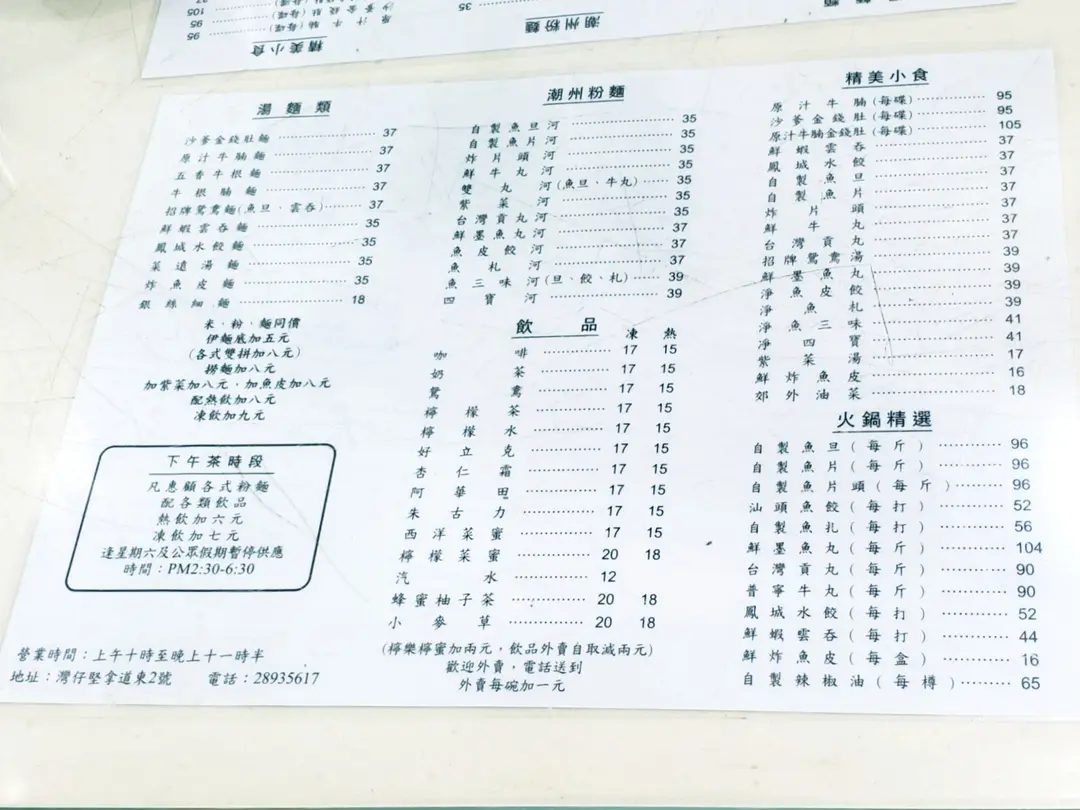 精美小食
潮州粉麵
湯麵類
沙爹金錢肚麵 37
原汁牛腩麵 37
五香牛根麵 37
牛根腩麵 37
招牌鴛鴦麵(魚旦、雲吞) 37
鮮蝦雲吞麵 35
鳳城水餃麵 35
菜遠湯麵 35
炸魚皮麵 35
銀絲細麵 18
米、粉、麵同價
伊麵底加五元
(各式雙拼加八元)
撈麵加八元
加紫菜加八元，加魚皮加八元
配熱飲加八元
凍飲加九元
下午茶時段
凡惠顧各式粉麵
配各類飲品
熱飲加六元
凍飲加七元
逢星期六及公眾假期暫停供應
時間：PM2:30-6:30
營業時間：上午十時至晚上十一時半
地址：灣仔堅拿道東2號 電話：28935617
潮州粉麵
自製魚旦河 35
自製魚片河 35
炸片頭河 35
鮮牛丸河 35
雙丸河(魚旦、牛丸) 35
紫菜河 35
台灣貢丸河 35
鮮墨魚丸河 37
魚皮餃河 37
魚札河 37
魚三味河(旦、餃、札) 39
四寶河 39
飲品 凍 熱
咖啡 17 15
奶茶 17 15
鴛鴦 17 15
檸檬茶 17 15
檸檬水 17 15
好立克 17 15
杏仁霜 17 15
阿華田 17 15
朱古力 17 15
西洋菜蜜 17 15
檸檬菜蜜 20 18
汽水 12
蜂蜜柚子茶 20 18
小麥草 20 18
(檸樂檸蜜加兩元，飲品外賣自取減兩元)
歡迎外賣，電話送到
外賣每碗加一元
精美小食
原汁牛腩(每碟) 95
沙爹金錢肚(每碟) 95
原汁牛腩金錢肚(每碟) 105
鮮蝦雲吞 37
鳳城水餃 37
自製魚旦 37
自製魚片 37
炸片頭 37
鮮牛丸 37
台灣貢丸 37
招牌鴛鴦湯 39
鮮墨魚丸 39
淨魚皮餃 39
淨魚札 39
淨魚三味 41
淨四寶 41
紫菜湯 17
鮮炸魚皮 16
郊外油菜 18
火鍋精選
自製魚旦(每斤) 96
自製魚片(每斤) 96
自製魚片頭(每斤) 96
汕頭魚餃(每打) 52
自製魚扎(每打) 56
鮮墨魚丸(每斤) 104
台灣貢丸(每斤) 90
普寧牛丸(每斤) 90
鳳城水餃(每打) 52
鮮蝦雲吞(每打) 44
鮮炸魚皮(每盒) 16
自製辣椒油(每樽) 65